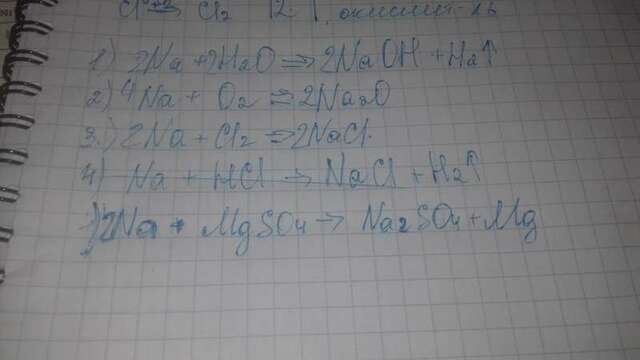 Cl₂
1) 2Na + 2H₂O ⇒ 2NaOH + H₂↑
2) 4Na + O₂ = 2Na₂O
3.) 2Na + Cl₂ ⇒ 2NaCl.
4) Na + HCl → NaCl + H₂↑
2Na + MgSO₄ → Na₂SO₄ + Mg